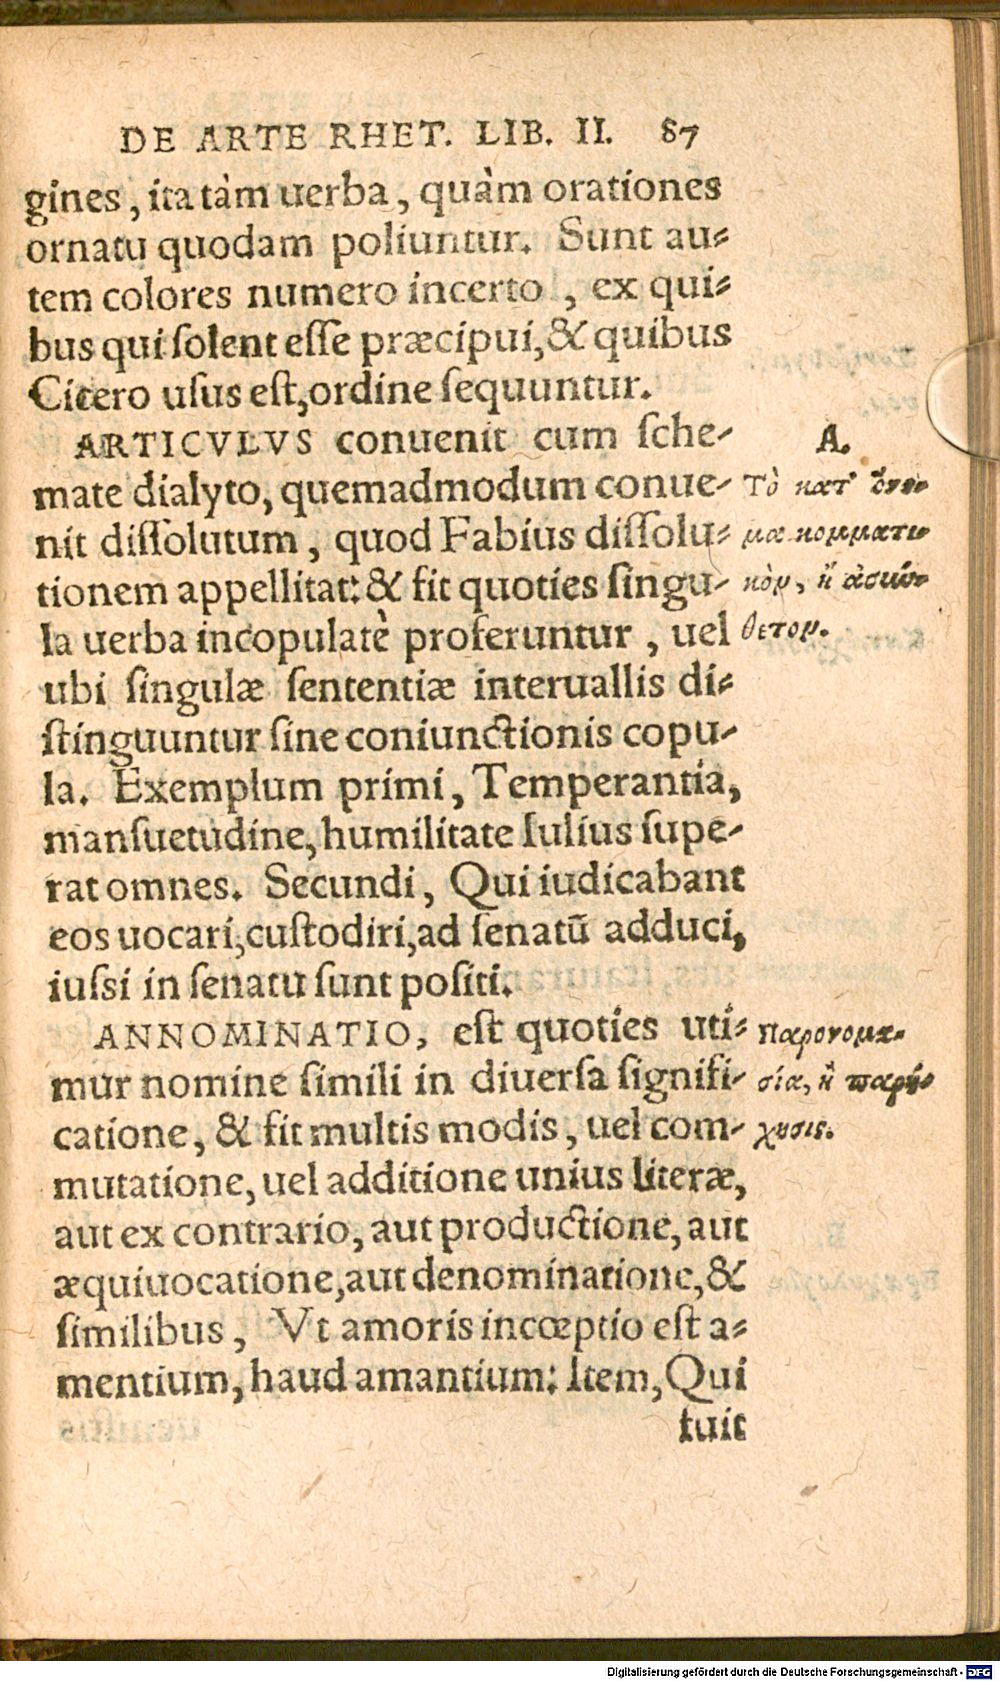 DE ARTE RHET. LIB. II. 87
gines, ita tàm uerba, quàm orationes
ornatu quodam poliuntur. Sunt au-
tem colores numero incerto, ex qui-
bus qui ſolent eſſe præcipui, & quibus
Cicero uſus eſt, ordine ſequuntur.
ARTICVLVS conuenit cum ſche-
mate dialyto, quemadmodum conue-
nit diſſolutum, quod Fabius diſſolu-
tionem appellitat: & fit quoties ſingu-
la uerba incopulatè proferuntur, uel
ubi ſingulæ ſententiæ interuallis di-
ſtinguuntur ſine coniunctionis copu-
la. Exemplum primi, Temperantia,
manſuetudine, humilitate Iulius ſupe-
rat omnes. Secundi, Qui iudicabant
eos uocari, cuſtodiri, ad ſenatũ adduci,
iuſsi in ſenatu ſunt poſiti.
ANNOMINATIO, eſt quoties uti-
mur nomine ſimili in diuerſa ſignifi-
catione, & fit multis modis, uel com-
mutatione, uel additione unius literæ,
aut ex contrario, aut productione, aut
æquiuocatione, aut denominatione, &
ſimilibus, Vt amoris incœptio eſt a-
mentium, haud amantium: Item, Qui
fuit
A.
Τὸ κατ'
μα κομματι-
κὸν, ἢ ἀσύν-
θετον.
Παρονομα-
σία, ἢ παρή-
χησις.